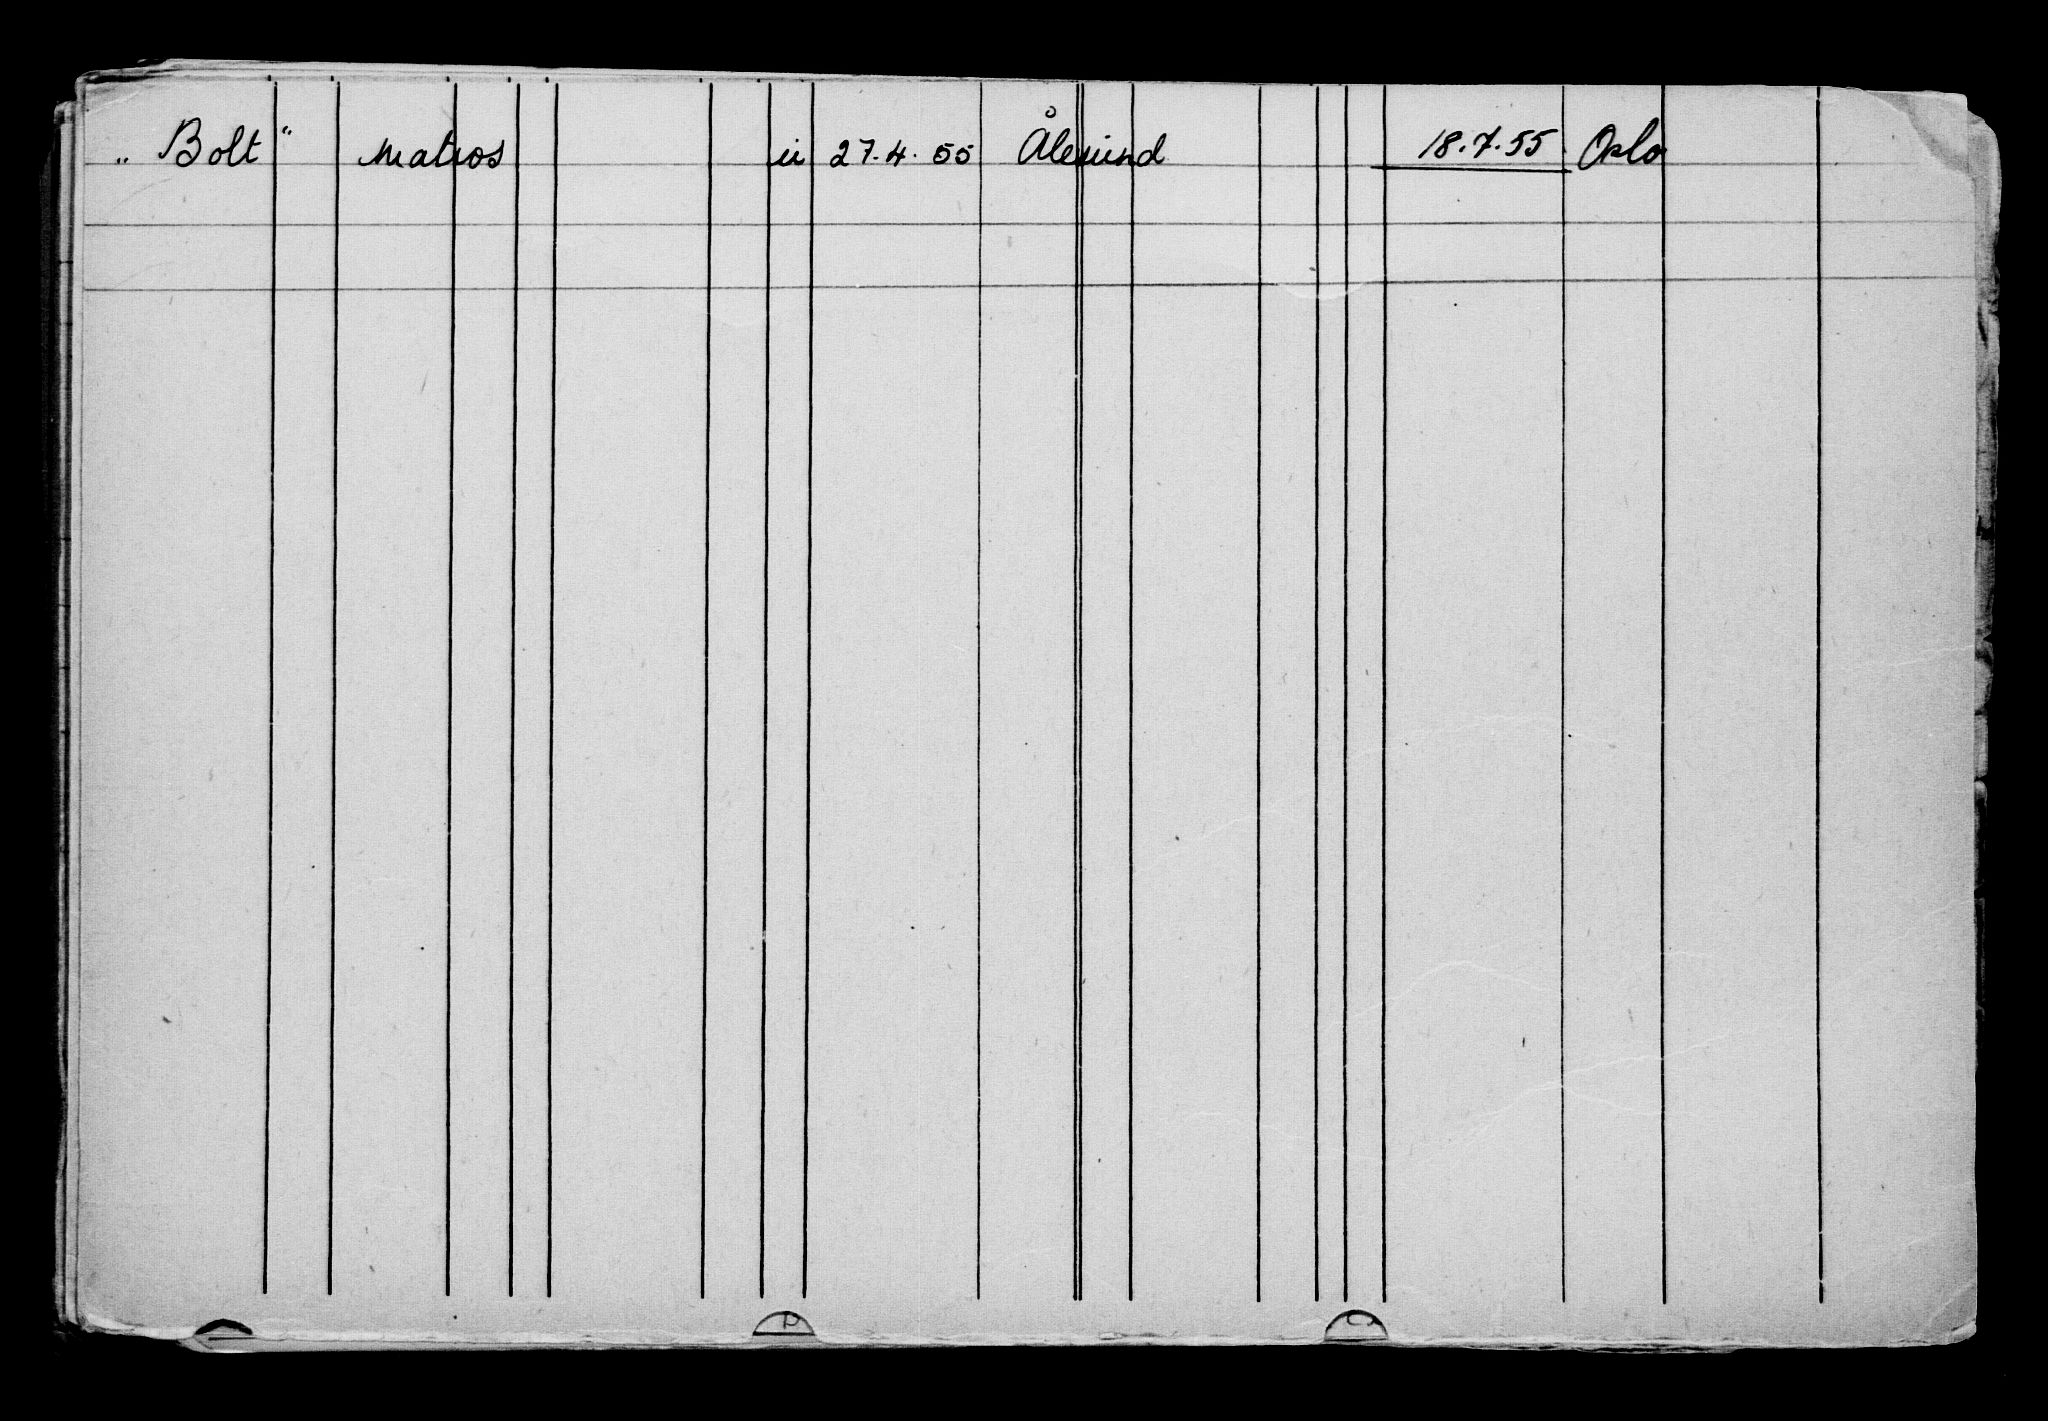 „ Bolt “ Matros u 27.4.55 Ålesund 18.7.55 Oslo